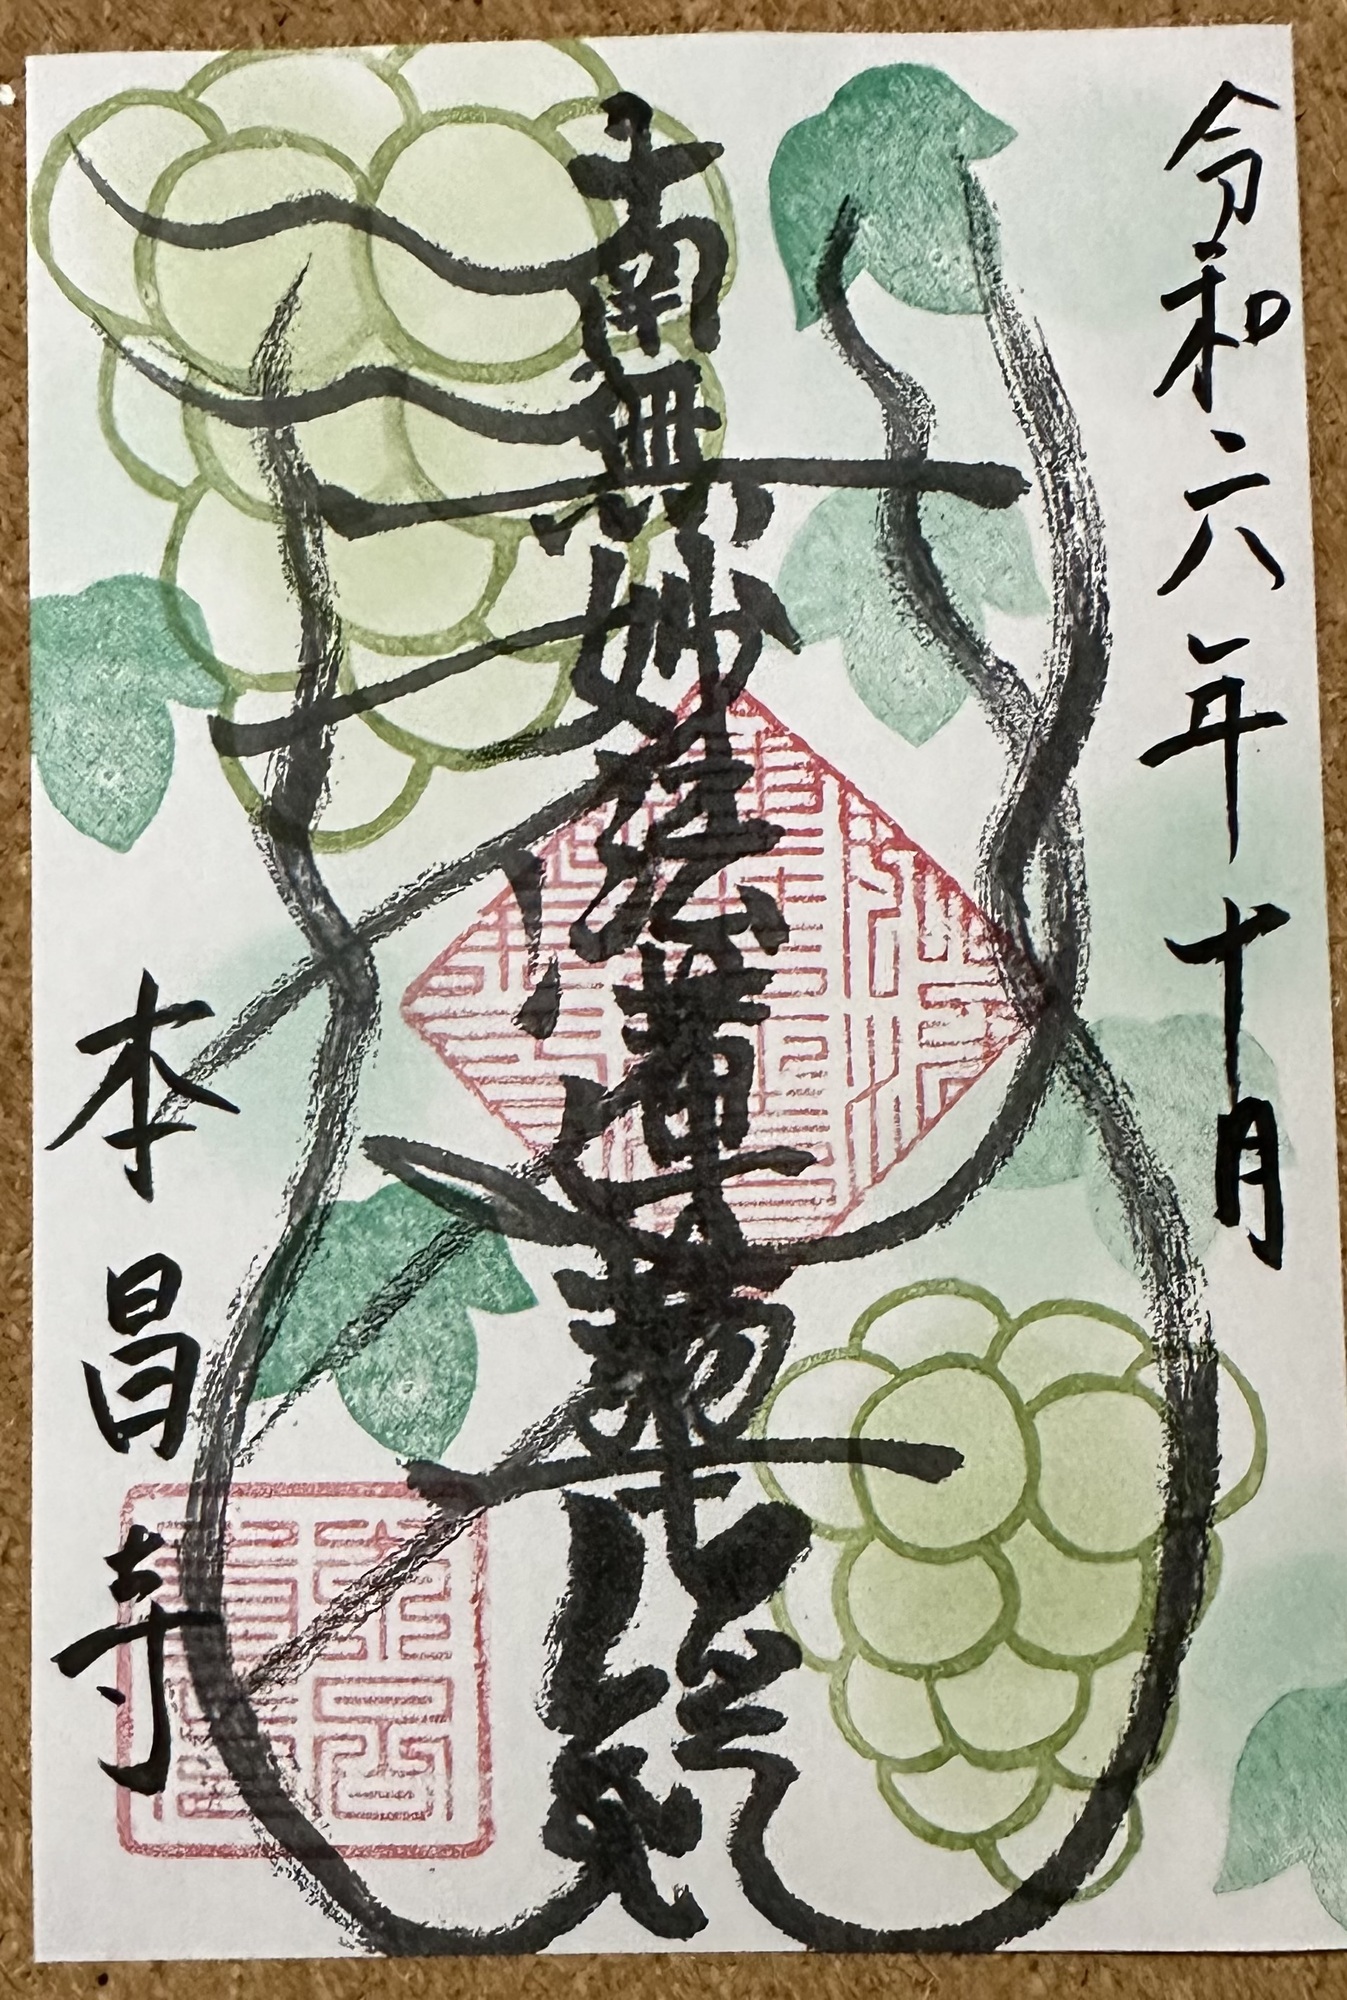 令和六年十月
南無妙法蓮華経
本昌寺